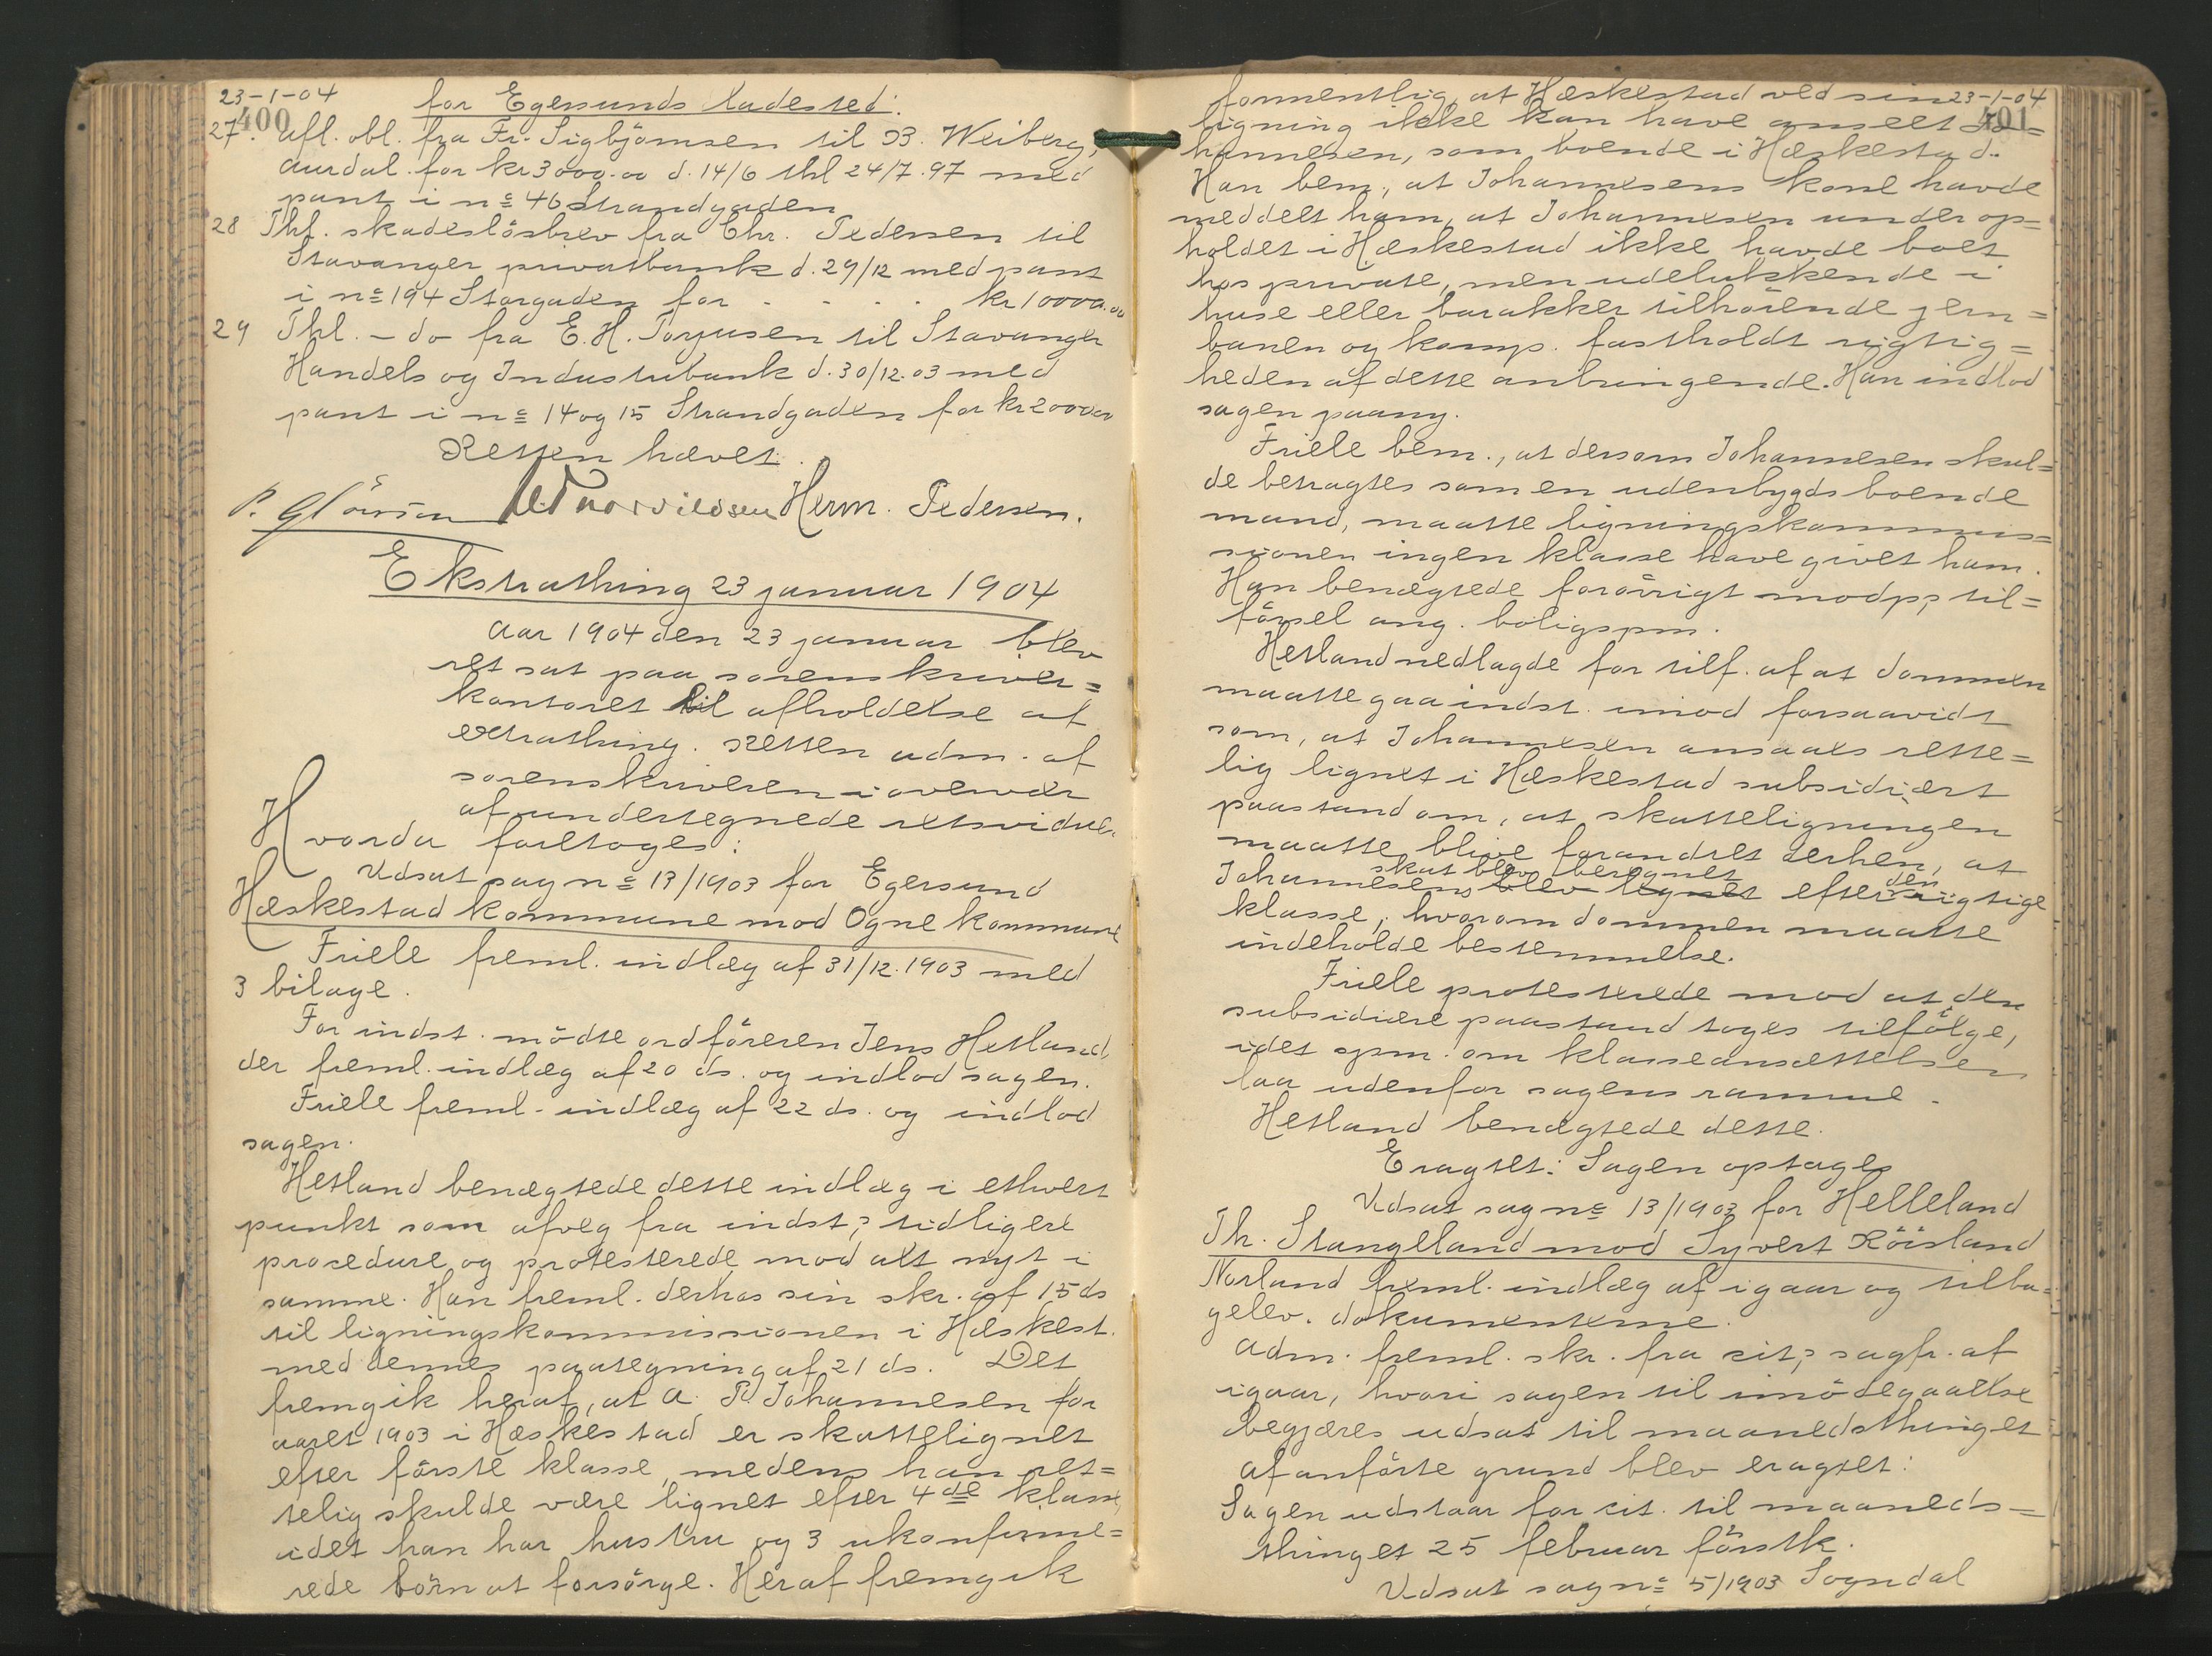 23-1-04
for Egersunds ladested:
400
27. Afl. obl. fra Fr. Sigbjörnsen til B. Weiberg,
Aurdal for kr 3000.00 d. 14/6 thl 24/7.97 med
pant i no 46 Strandgaden
28 Thl. skadeslösbrev fra Chr. Pedersen til
Stavanger privatbank d. 29/12 med pant
i no 194 Storgaden for - - - - kr 10000.00
29 Thl. - do fra E. H. Torjusen til Stavanger
Handels og Industribank d. 30/12.03 med
pant i no 14 og 15 Strandgaden for kr 2000.00
Retten hævet.
Herm. Pedersen.
Ekstrathing 23 januar 1904
Aar 1904 den 23 januar blev
ret sat paa sorenskriver=
kontoret til afholdelse af
extrathing. Retten adm. af
sorenskriveren i overvær
af undertegnede retsvidner.
Hvorda foretoges:
Udsat sag no 13/1903 for Egersund
Hæskestad kommune mod Ogne kommune
Friele freml. indlæg af 31/12.1903 med
3 bilage.
For indst. mödte ordföreren Jens Hetland,
der freml. indlæg af 20 ds. og indlod sagen.
Friele freml. indlæg af 22 ds. og indlod
sagen.
Hetland benægtede dette indlæg i ethvert
punkt som afveg fra indst.s tidligere
procedure og protesterede mod alt nyt i
samme. Han freml. derhos sin skr. af 15 ds
til ligningskommissionen i Hæskest.
med dennes paategning af 21 ds. Det
fremgik heraf, at A. P. Johannesen for
aaret 1903 i Hæskestad er skattelignet
efter förste klasse, medens han ret=
telig skulde være lignet efter 4de klasse,
idet han har hustru og 3 ukonfirme=
rede börn at forsörge. Heraf fremgik
formentlig, at Hæskestad ved sin 23-1-04
401
ligning ikke kan have anseet Jo=
hannesen, som boende i Hæskestad.
Han bem., at Johannesens kone havde
meddelt ham, at Johannesen under op=
holdet i Hæskestad ikke havde boet
hos private, men udelukkende i
huse eller barakker tilhörende jern=
banen og komp. fastholdt rigtig=
heden af dette anbringende. Han indlod
sagen paany.
Friele bem., at dersom Johannesen skul=
de betragtes som en udenbygds boende
mand, maatte ligningskommis=
sionen ingen klasse have givet ham.
Han benægtede forövrigt modp.s til=
försel ang. boligspm.
Hetland nedlagde for tilf. af at dommen
maatte gaa indst. imod forsaavidt
som, at Johannesen ansaaes rette=
lig lignet i Hæskestad subsidiært
paastand om, at skatteligningen
maatte blive forandret derhen, at
skat blev beregnet
Johannesens blev lignet efter den rigtige
klasse, hvorom dommen maatte
indeholde bestemmelse.
Friele protesterede mod at den
subsidiære paastand toges tilfölge,
idet spm. om klasseansættelsen
laa udenfor sagens ramme.
Hetland benægtede dette.
Eragtet: Sagen optages
Udsat sag no 13/1903 for Helleland
Th. Stangeland mod Syvert Röisland
Norland freml. indlæg af igaar og tilba=
gelev. dokumenterne.
Adm. freml. skr. fra cit.s sagf. af
igaar, hvori sagen til imödegaaelse
begjæres udsat til maanedsthinget
Af anförte grund blev eragtet:
Sagen udstaar for cit. til maaneds=
thinget 25 februar förstk.
Udsat sag no 5/1903 Sogndal